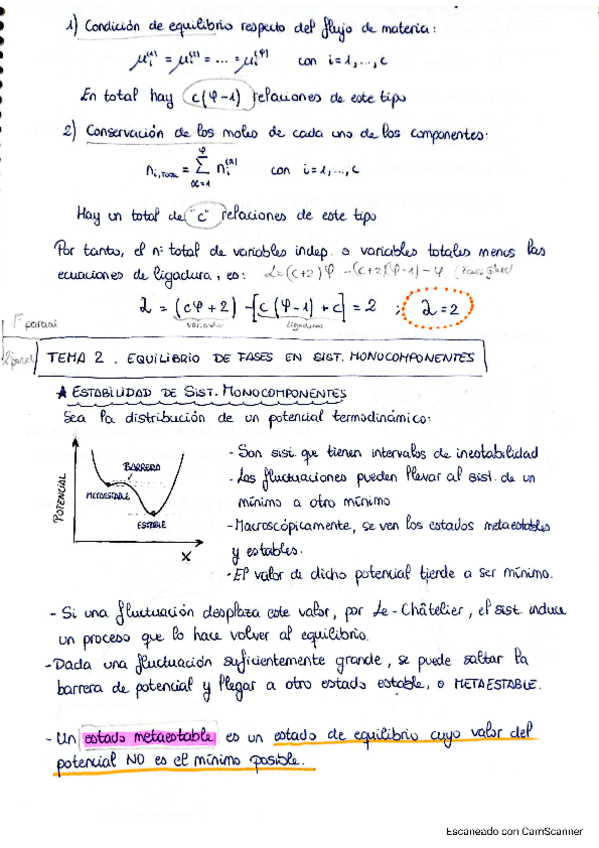 1) Condición de equilibrio respecto del flujo de materia:
μi^(1) = μi^(2) = ... = μi^(φ) con i=1,...,c
En total hay c(φ-1) relaciones de este tipo
2) Conservación de los moles de cada uno de los componentes:
ni,TOTAL = Σ_{α=1}^{φ} ni^(α) con i=1,...,c
Hay un total de "c" relaciones de este tipo
Por tanto, el nº total de variables indep. o variables totales menos las
ecuaciones de ligadura, es: L=(c+2)φ -(c+2)(φ-1)-φ
L = (cφ+2) -[c(φ-1)+c] = 2 ; L=2
variables ligaduras
1er parcial
2º parcial
TEMA 2. EQUILIBRIO DE FASES EN SIST. MONOCOMPONENTES
★ ESTABILIDAD DE SIST. MONOCOMPONENTES
Sea la distribución de un potencial termodinámico:
POTENCIAL
BARRERA
METAESTABLE
ESTABLE
X
- Son sist. que tienen intervalos de inestabilidad
- Las fluctuaciones pueden llevar al sist. de un
mínimo a otro mínimo
- Macroscópicamente, se ven los estados metaestables
y estables.
- El valor de dicho potencial tiende a ser mínimo.
- Si una fluctuación desplaza este valor, por Le-Châtelier, el sist. induce
un proceso que lo hace volver al equilibrio.
- Dada una fluctuación suficientemente grande, se puede saltar la
barrera de potencial y llegar a otro estado estable, o METAESTABLE.
- Un estado metaestable es un estado de equilibrio cuyo valor del
potencial NO es el mínimo posible.
Escaneado con CamScanner